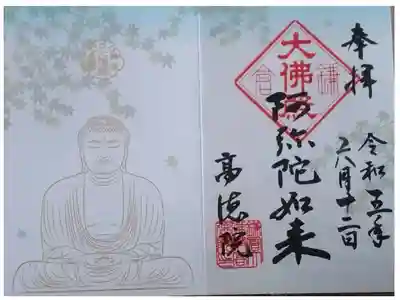 奉拝
令和五年
八月十二日
大佛殿
鎌倉
阿弥陀如来
高徳院